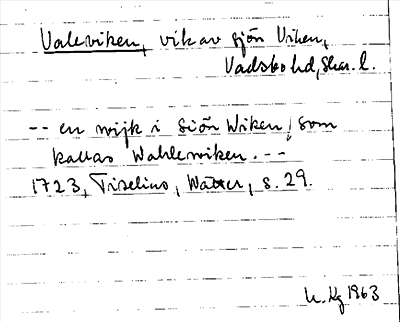 Valeviken, vik av sjön Viken,
Vadsbo hd, Skar. l.
-- en wijk i Siön Wiken, som
kallas Wahlewiken. --
1723, Tiselius, Wätter, s. 29.
U. Kg 1963